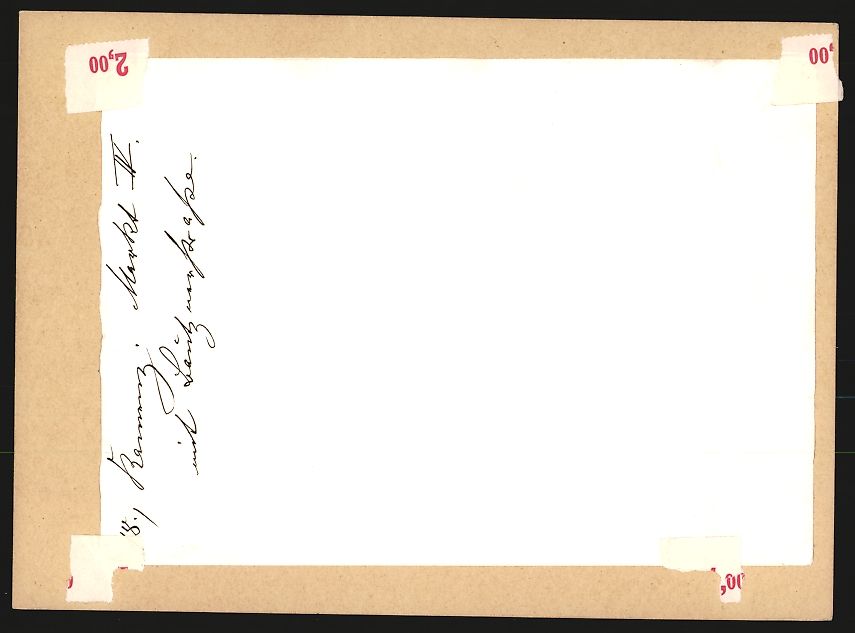 8.) Kamenz. Markt IV.
mit Bautznerstraße.
2,00
00
00